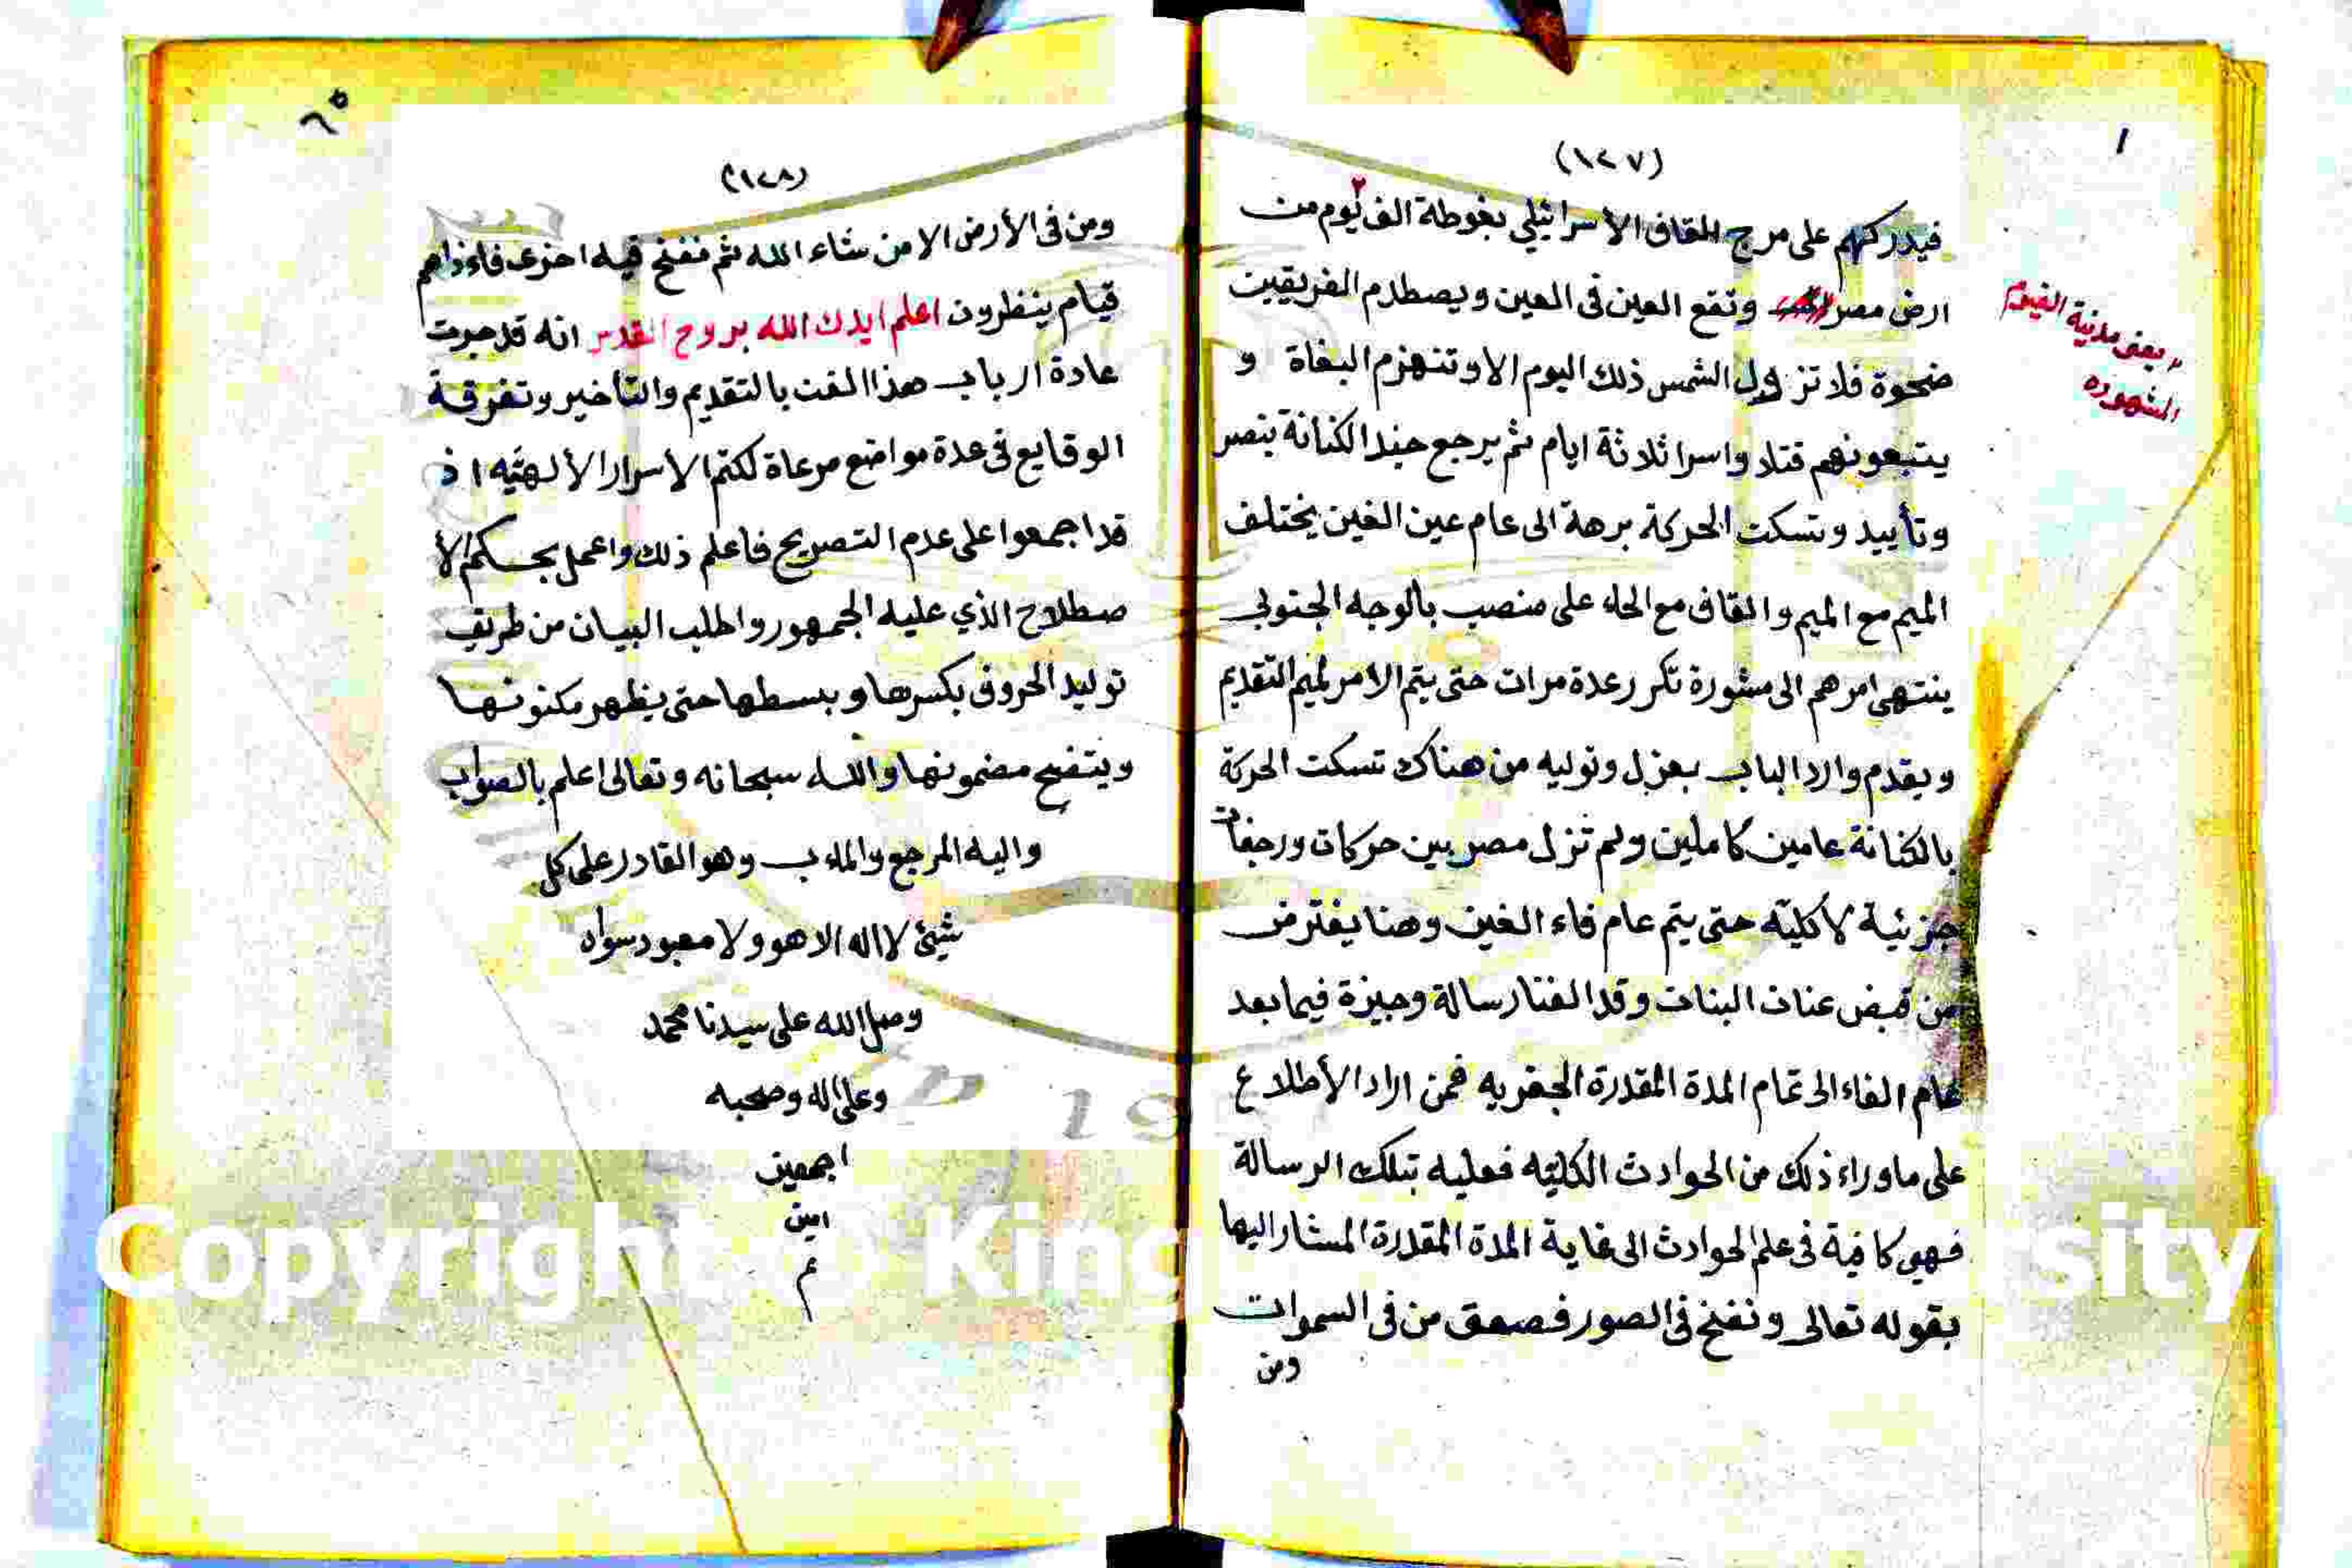 (١٢٧)
١
فيدركهم على مرج القاف الأسرائيلي بغوطة الف ٢ يوم من
ارض مصر وتقع العين فى العين ويصطدم الفريقين
ضحوة فلا تزول الشمس ذلك اليوم الا وتنهزم البغاة و
يتبعونهم قتلا واسرا ثلاثة ايام ثم يرجع جند الكنانة بنصر
وتأييد وتسكت الحركة برهة الى عام عين الغين يختلف
الميم مع الميم والقاف مع الحاء على منصب بالوجه الجنوبى
ينتهى امرهم الى مشورة تكرر عدة مرات حتى يتم الامر لميم التقديم
ويقدم وارد الباب بعزل وتوليه من هناك تسكت الحركة
بالكنانة عامين كاملين ولم تزل مصر بين حركات ورجفات
جزئية لا كليّه حتى يتم عام فاء الغين وهنا يفترض
من قبض عنان البنان وقد الفنا رسالة وجيزة فيما بعد
عام الفاء الى تمام المدة المقدرة الجفريه فمن اراد الأطلاع
على ما وراء ذلك من الحوادث الكليّه فعليه بتلك الرسالة
فهى كافية فى علم الحوادث الى غاية المدة المقدرة المشار اليها
بقوله تعالى ونفخ فى الصور فصعق من فى السموات
ومن
يعنى مدينة الفيوم
المشهوره
٦٥
(١٢٨)
ومن فى الأرض الا من شاء الله ثم نفخ فيه اخرى فاءذاهم
قيام ينظرون اعلم ايدك الله بروح القدس انه قد جرت
عادة ارباب هذا الفن بالتقديم والتأخير وتفرقة
الوقايع فى عدة مواضع مرعاة لكتم الأسرار الألهيّه اذ
قد اجمعوا على عدم التصريح فاعلم ذلك واعمل بحسكم الأ
صطلاح الذي عليه الجمهور واطلب البيان من طريق
توليد الحروف بكسرها وبسطها حتى يظهر مكنونها
ويتضح مضمونها والله سبحانه وتعالى اعلم بالصواب
واليه المرجع والماءب وهو القادر على كل
شيئ لا اله الا هو ولا معبود سواه
وصل الله على سيدنا محمد
وعلى اله وصحبه
اجمعين
امين
م
Copyright © King sity